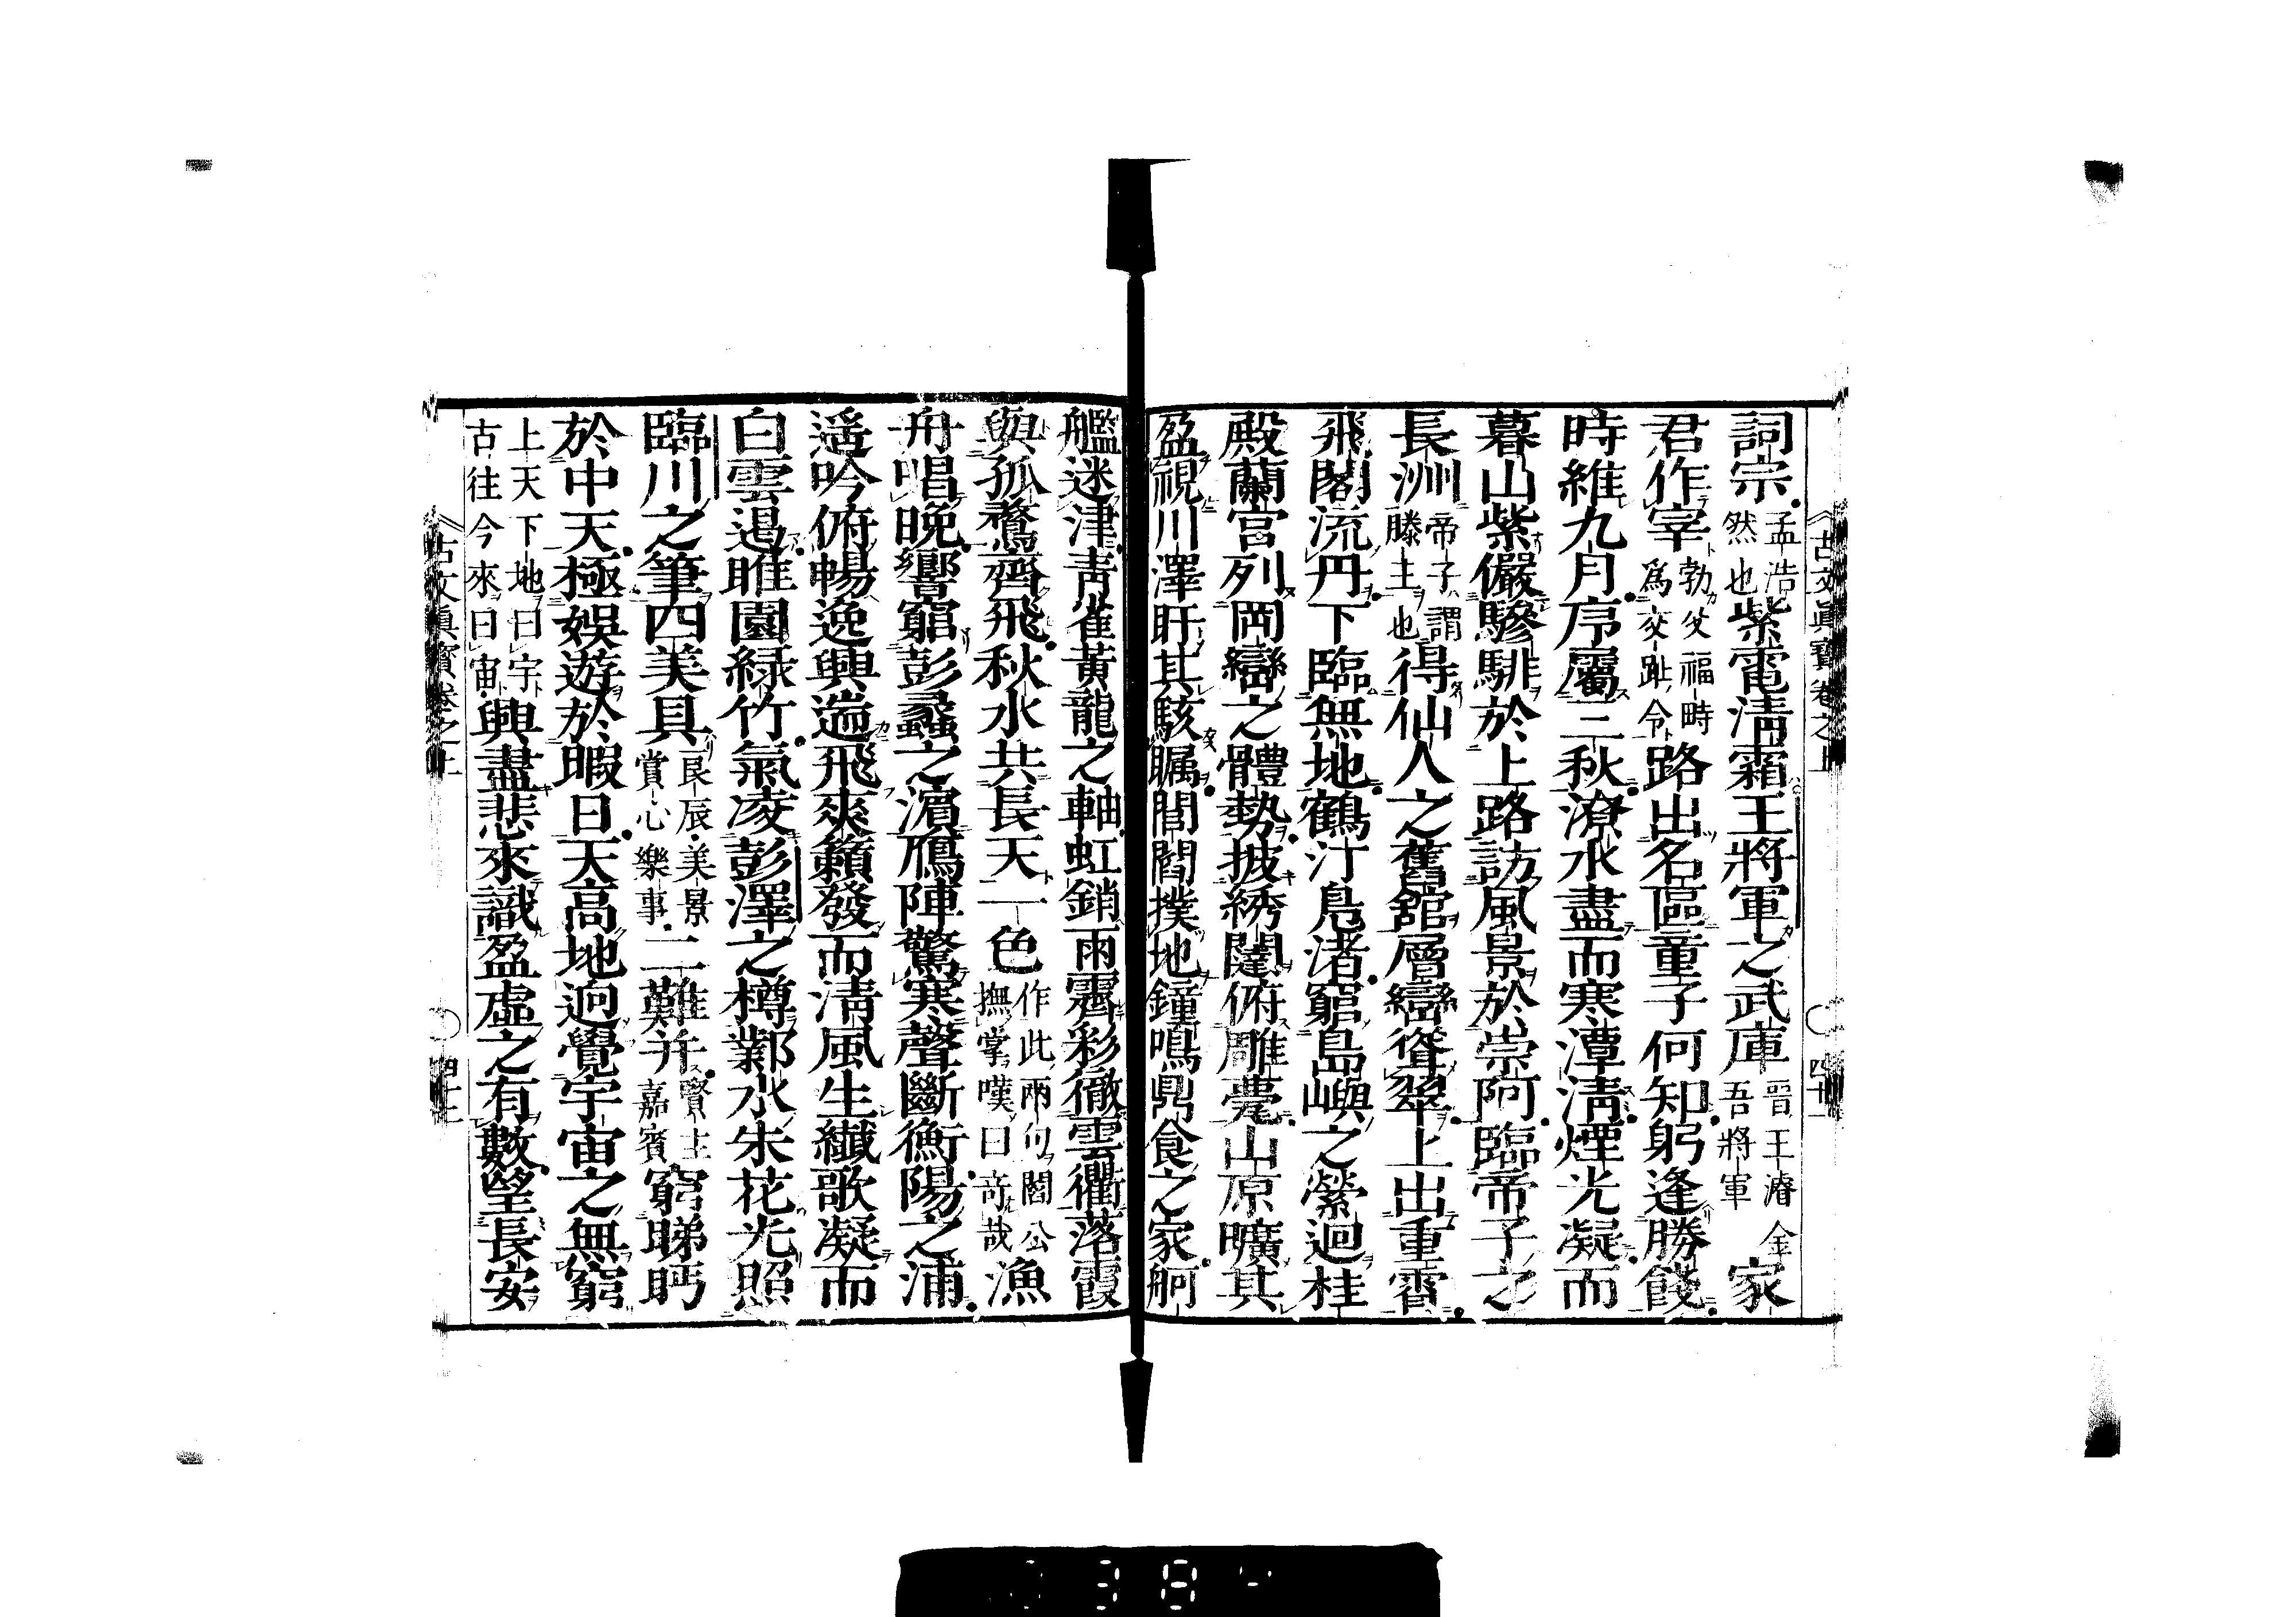 古文眞寳卷之上　四十一
詞宗孟浩然也紫電淸霜王將軍之武庫晋王濬吾將軍金家
君作宰勃父福時爲交趾令路出名區童子何知躬逢勝餞
時維九月序屬三秋潦水盡而寒潭淸煙光凝而
暮山紫儼驂騑於上路訪風景於崇阿臨帝子之
長洲帝子謂滕王也得仙人之舊舘層巒聳翠上出重霄
飛閣流丹下臨無地鶴汀鳬渚窮島嶼之縈迴桂
殿蘭宮列岡巒之體勢披綉闥俯雕甍山原曠其
盈視川澤盱其駭矚閭閻撲地鐘鳴鼎食之家舸
艦迷津靑雀黃龍之軸虹銷雨霽彩徹雲衢落霞
與孤鶩齊飛秋水共長天一色作此兩句閻公撫掌嘆曰奇哉漁
舟唱晩響窮彭蠡之濵鴈陣驚寒聲斷衡陽之浦
遥吟俯暢逸興遄飛爽籟發而淸風生纎歌凝而
白雲遏睢園緑竹氣凌彭澤之樽鄴水朱花光照
臨川之筆四美具良辰美景賞心樂事二難并賢主嘉賓窮睇眄
於中天極娯遊於暇日天高地迥覺宇宙之無窮
上天下地曰宇古往今來曰宙興盡悲來識盈虛之有數望長安
古文眞寳卷之上　四十一